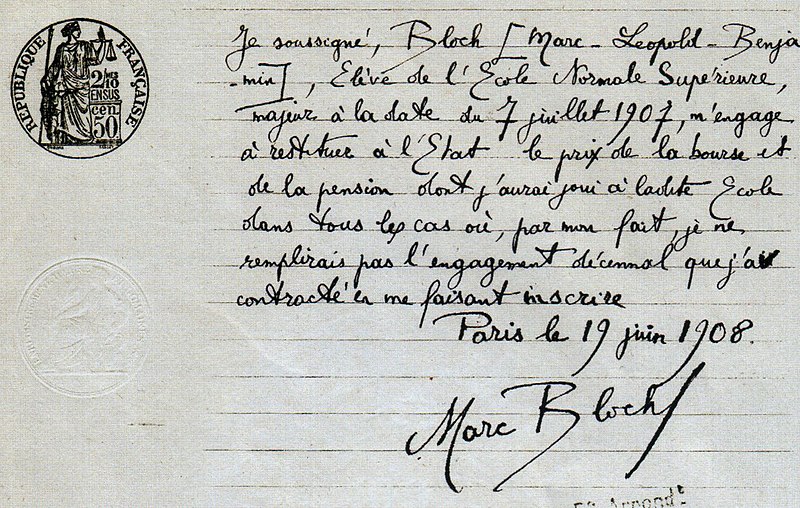 RÉPUBLIQUE FRANÇAISE
2/10
EN SUS
cen.
50
Je soussigné, Bloch [Marc-Léopold-Benja
-min], Elève de l'École Normale Supérieure,
majeur à la date du 7 juillet 1907, m'engage
à restituer à l'Etat le prix de la bourse et
de la pension dont j'aurai joui à ladite Ecole
dans tous les cas où, par mon fait, je ne
remplirais pas l'engagement décennal que j'ai
contracté en me faisant inscrire
Paris le 19 juin 1908.
Marc Bloch
Arrond^t